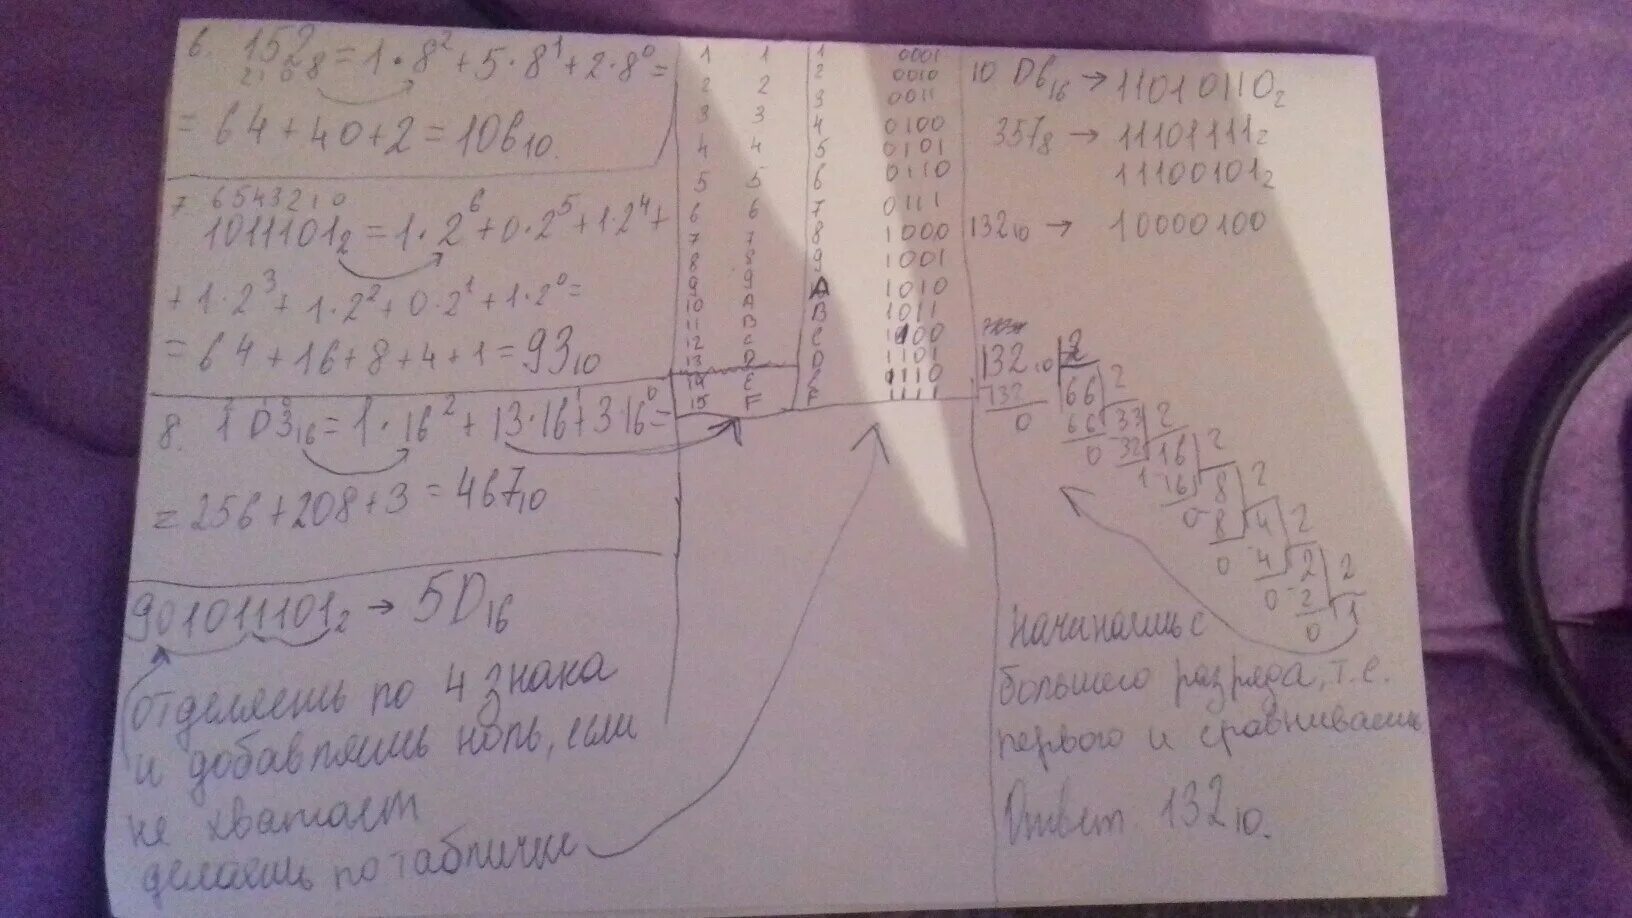 6. 152₈ = 1·8² + 5·8¹ + 2·8⁰ =
2 1 0
= 64 + 40 + 2 = 106₁₀.
7 6 5 4 3 2 1 0
1011101₂ = 1·2⁶ + 0·2⁵ + 1·2⁴ +
+ 1·2³ + 1·2² + 0·2¹ + 1·2⁰ =
= 64 + 16 + 8 + 4 + 1 = 93₁₀
8. 1D3₁₆ = 1·16² + 13·16¹ + 3·16⁰ =
= 256 + 208 + 3 = 467₁₀
9 01011101₂ → 5D₁₆
отделяешь по 4 знака
и добавляешь ноль, если
не хватает
делаешь по табличке
1 1 1 0001
2 2 2 0010
3 3 3 0011
4 4 4 0100
5 5 5 0101
6 6 6 0110
7 7 7 0111
8 8 8 1000
9 9 9 1001
10 A A 1010
11 B B 1011
12 C C 1100
13 D D 1101
14 E E 1110
15 F F 1111
10 D6₁₆ → 11010110₂
357₈ → 11101111₂
11100101₂
132₁₀ → 10000100
132₁₀ 2
132 66 2
0 66 33 2
0 32 16 2
1 16 8 2
0 8 4 2
0 4 2 2
0 2 1
0
начинаешь с
большего разряда, т.е.
первого и сравниваешь
Ответ. 132₁₀.